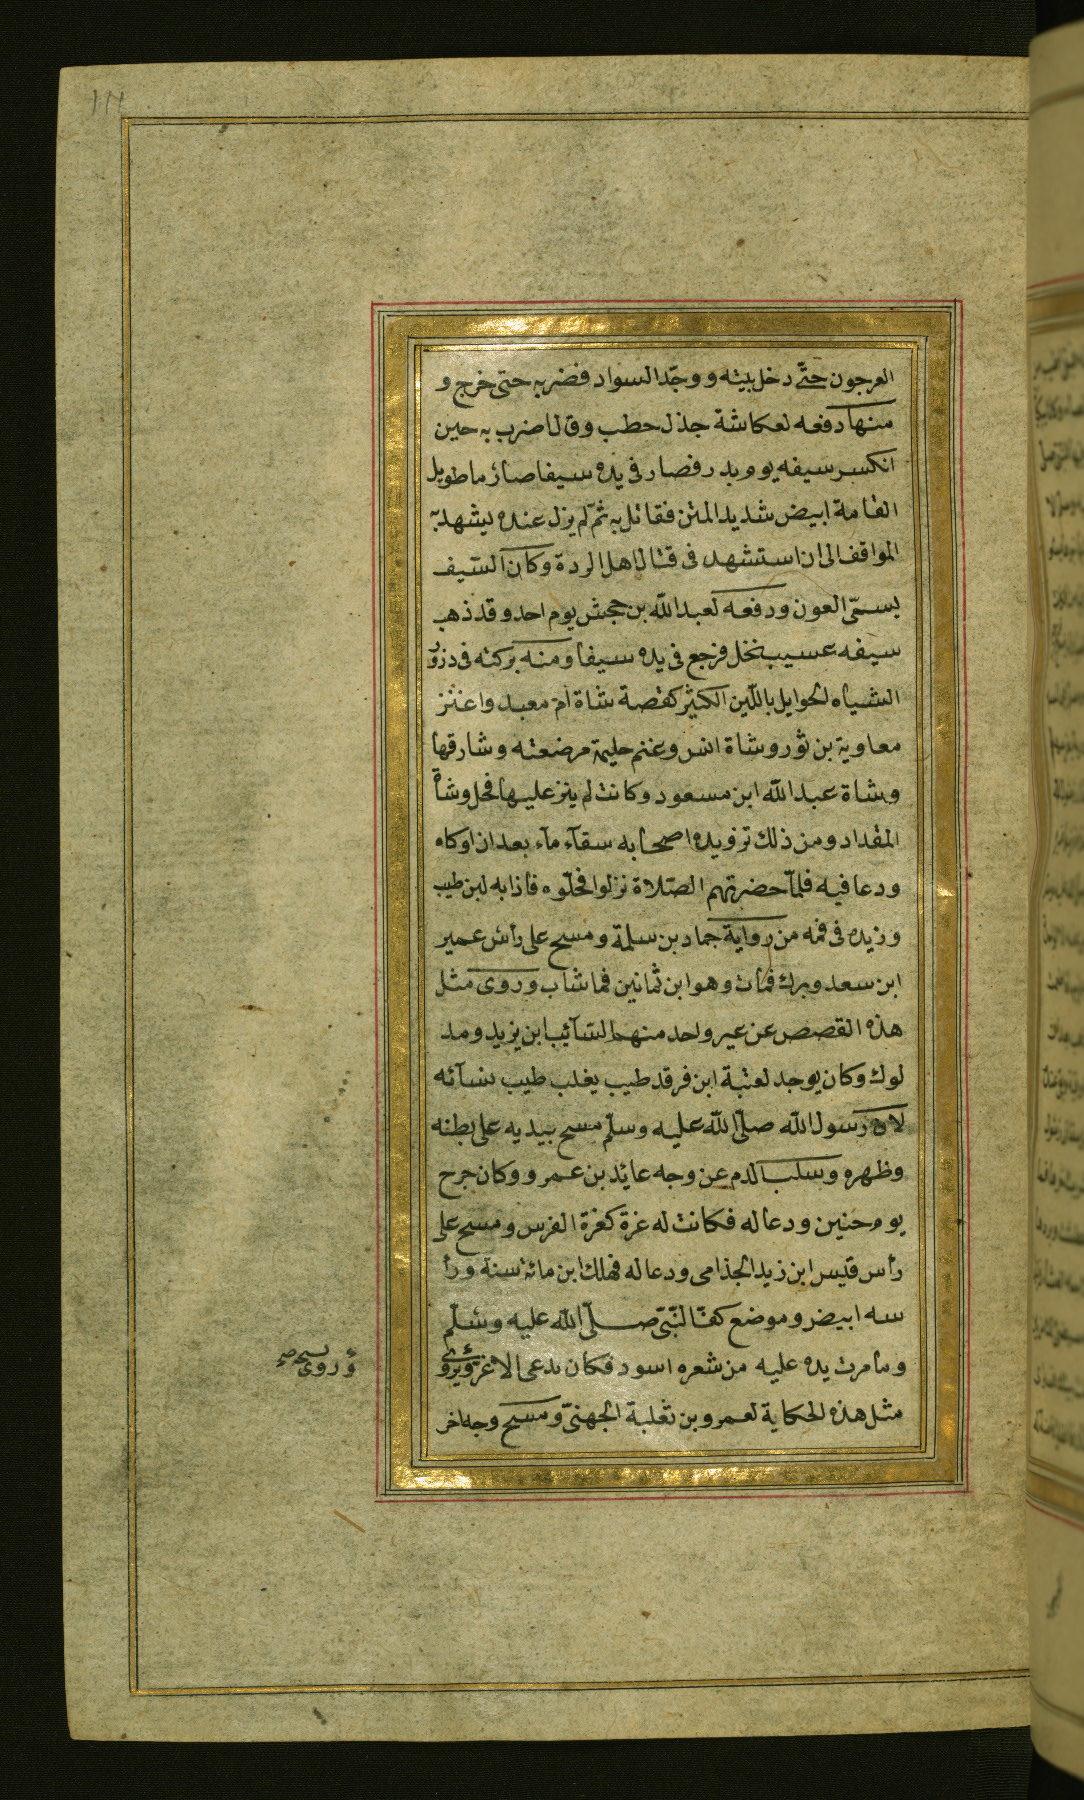 العرجون حتّى دخل بيته ووجد السواد فضربه حتى خرج و
منها دفعه لعكاشة جذل حطب وقال اضرب به حين
انكسر سيفه يوم بدر فصار في يده سيفا صارما طويل
القامة ابيض شديد المتن فقاتل به ثمّ لم يزل عنده يشهد به
المواقف الى ان استشهد في قتال اهل الردة وكان السّيف
يسمّى العون ودفعه لعبد الله بن جحش يوم احد وقد ذهب
سيفه عسيب نخل فرجع في يده سيفا ومنه بركته في درور
الشياه الحوايل باللّبن الكثير كقصة شاة امّ معبد واعنز
معاوية بن ثور وشاة انس وغنم حليمة مرضعته وشارفها
وشاة عبد الله ابن مسعود وكانت لم ينز عليها فحل وشاة
المقداد ومن ذلك تزويده اصحابه سقآء مآء بعد ان اوكاه
ودعا فيه فلمّا حضرتهم الصّلاة نزلوا فحلّوه فاذا به لبن طيب
وزبده في فمه من رواية حماد بن سلمة ومسح على رأس عمير
ابن سعد وبرك فمات وهو ابن ثمانين فما شاب وروى مثل
هذه القصص عن غير واحد منهم السّآئب ابن يزيد ومد
لوك وكان يوجد لعتبة ابن فرقد طيب يغلب طيب نسآئه
لان رسول الله صلّى الله عليه وسلّم مسح بيديه على بطنه
وظهره وسلب الدم عن وجه عايد بن عمرو وكان جرح
يوم حنين ودعا له فكانت له غرة كغرة الفرس ومسح على
رأس قيس ابن زيد الجذامى ودعا له فهلك ابن مائة سنة ورأ
سه ابيض وموضع كفّ النّبىّ صلّى الله عليه وسلّم
وما مرت يده عليه من شعره اسود فكان يدعى الاغر ويروى
مثل هذه الحكاية لعمرو بن ثعلبة الجهنىّ ومسح وجه اخر
وروى